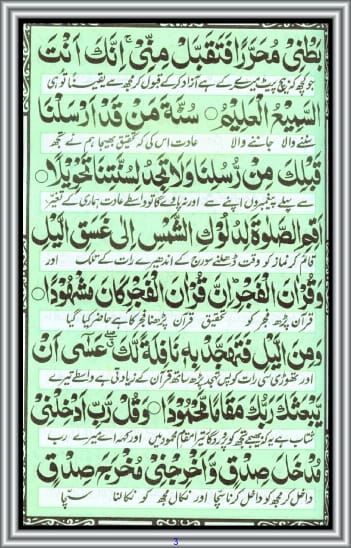 بَطْنِیْ مُحَرَّرًا فَتَقَبَّلْ مِنِّیْ ۚ اِنَّكَ اَنْتَ
جو کچھ کہ بیچ پیٹ میرے کے ہے آزاد کر کے قبول کر مجھ سے یقیناً تو ہی
السَّمِیْعُ الْعَلِیْمُ ○ سُنَّةَ مَنْ قَدْ اَرْسَلْنَا
سننے والا جاننے والا عادت اس کی کہ تحقیق بھیجا ہم نے تجھ
قَبْلَكَ مِنْ رُّسُلِنَا وَلَا تَجِدُ لِسُنَّتِنَا تَحْوِیْلًا ○
سے پہلے پیغمبروں اپنے سے اور نہ پاوے گا تو واسطے عادت ہماری کے تغیر
اَقِمِ الصَّلٰوةَ لِدُلُوْكِ الشَّمْسِ اِلٰی غَسَقِ الَّیْلِ
قائم کر نماز کو وقت ڈھلنے سورج کے اندھیرے رات کے تلک اور
وَقُرْاٰنَ الْفَجْرِ ؕ اِنَّ قُرْاٰنَ الْفَجْرِ كَانَ مَشْهُوْدًا ○
قرآن پڑھ فجر کو تحقیق قرآن پڑھنا فجر کا ہے حاضر کیا گیا
وَمِنَ الَّیْلِ فَتَهَجَّدْ بِهٖ نَافِلَةً لَّكَ ۖ عَسٰۤی اَنْ
اور تھوڑی سی رات کو پس تہجد پڑھ ساتھ قرآن کے زیادتی ہے واسطے تیرے
یَّبْعَثَكَ رَبُّكَ مَقَامًا مَّحْمُوْدًا ○ وَقُلْ رَّبِّ اَدْخِلْنِیْ
شتاب ہے یہ کہ بھیجے تجھ کو پروردگار تیرا مقام محمود میں اور کہہ اے میرے رب
مُدْخَلَ صِدْقٍ وَّاَخْرِجْنِیْ مُخْرَجَ صِدْقٍ
داخل کر مجھ کو داخل کرنا سچا اور نکال مجھ کو نکالنا سچا
3